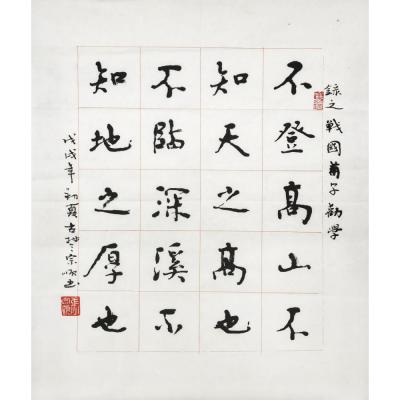 錄之戰國荀子勸學
不登高山不
知天之高也
不臨深溪不
知地之厚也
戊戌年初夏古